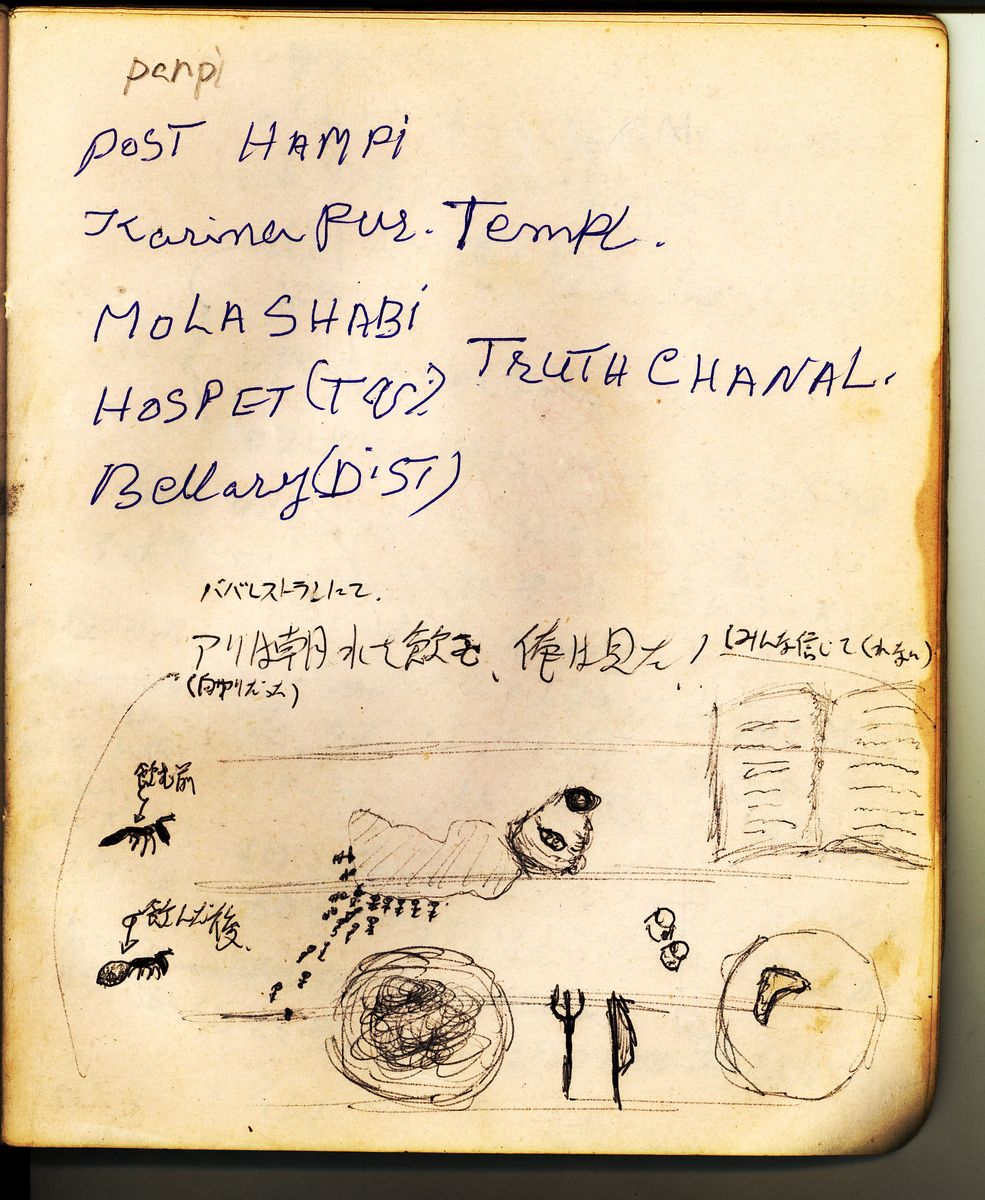 panpi
POST HAMPi
Karina Pur. Templ.
MOLA SHABi
TRUTH CHANAL.
HOSPET (Tq)
Bellary (DiST)
ババレストランにて.
アリは朝水を飲む、俺は見た!(みんな信じてくれない)
飲む前
飲んだ後